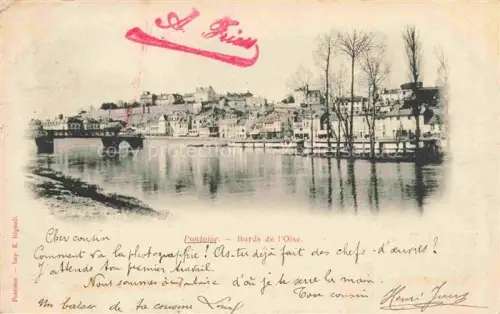 A. Fries
Pontoise. - Bords de l'Oise.
Cher cousin
Comment va la photographie! As-tu déjà fait des chefs-d'œuvres?
J'attends ton premier travail.
Nous sommes à Pontoise d'où je te serre la main.
Ton cousin
Henri
Un baiser de ta cousine
Pontoise - Imp. E. Déguait